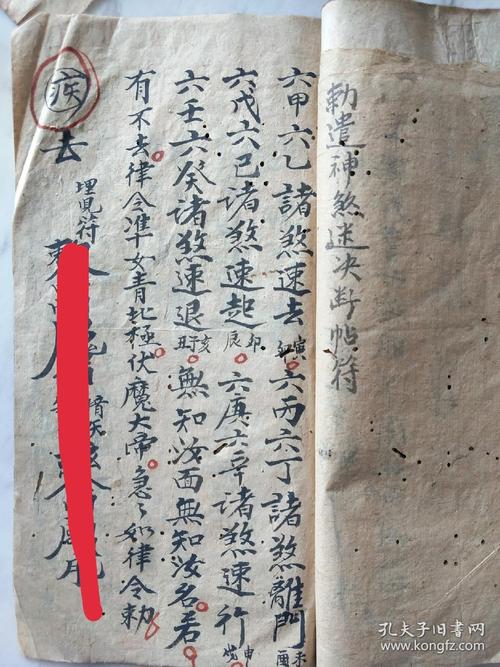 勅遣神煞迷决断帖符
六甲六乙諸煞速去寅卯六丙六丁諸煞離門未酉
六戊六己诸煞速起卯辰六庚六辛诸煞速行申戌
六壬六癸诸煞速退亥子丑無知汝面無知汝名若
有不去律令準女青北極伏魔大帝急々如律令勅
疾去
孔夫子旧书网
www.kongfz.com